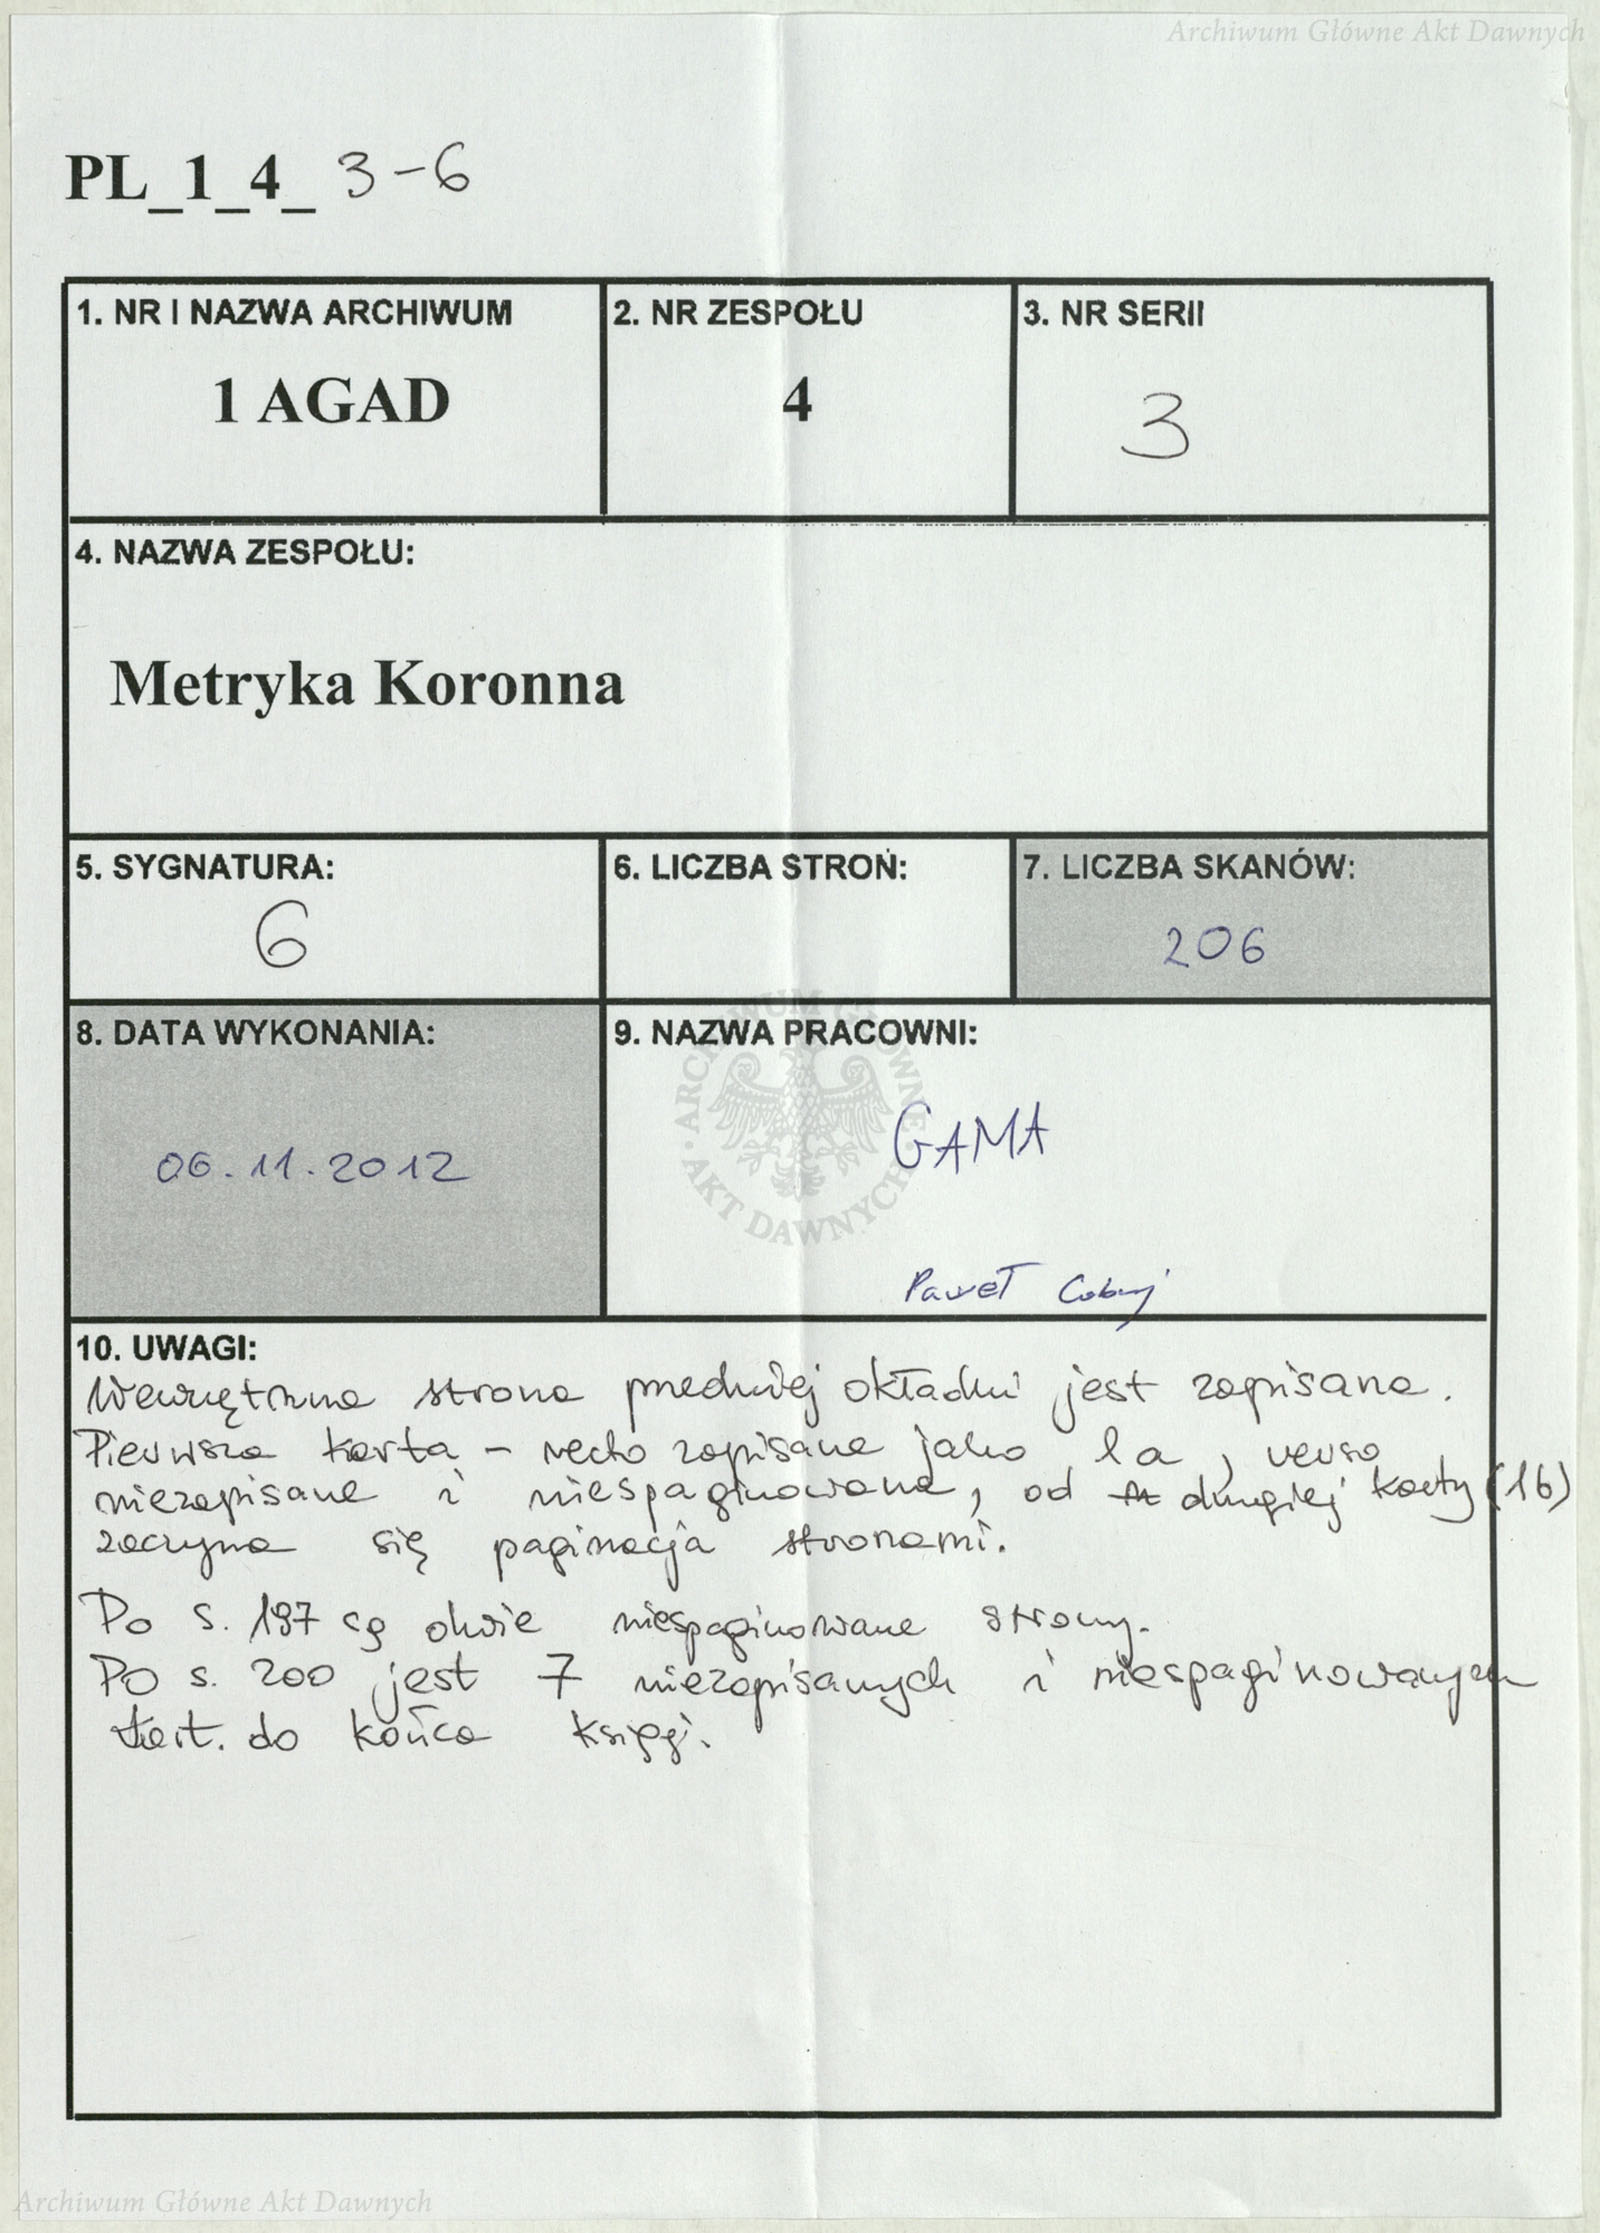 Archiwum Główne Akt Dawnych
PL_1_4_ 3-6
1. NR I NAZWA ARCHIWUM
1 AGAD
2. NR ZESPOŁU
4
3. NR SERII
3
4. NAZWA ZESPOŁU:
Metryka Koronna
5. SYGNATURA:
6
6. LICZBA STRON:
7. LICZBA SKANÓW:
206
8. DATA WYKONANIA:
06.11.2012
9. NAZWA PRACOWNI:
GAMA
Paweł
ARCHIWUM GŁÓWNE AKT DAWNYCH
10. UWAGI:
Wewnętrzna strona przedniej okładki jest zapisana.
Pierwsza karta – recto zapisane jako 1a, verso
niezapisane i niespaginowane, od drugiej karty (1b)
zaczyna się paginacja stronami.
Po s. 197 są dwie niespaginowane strony.
Po s. 200 jest 7 niezapisanych i niespaginowanych
kart. do końca księgi.
Archiwum Główne Akt Dawnych